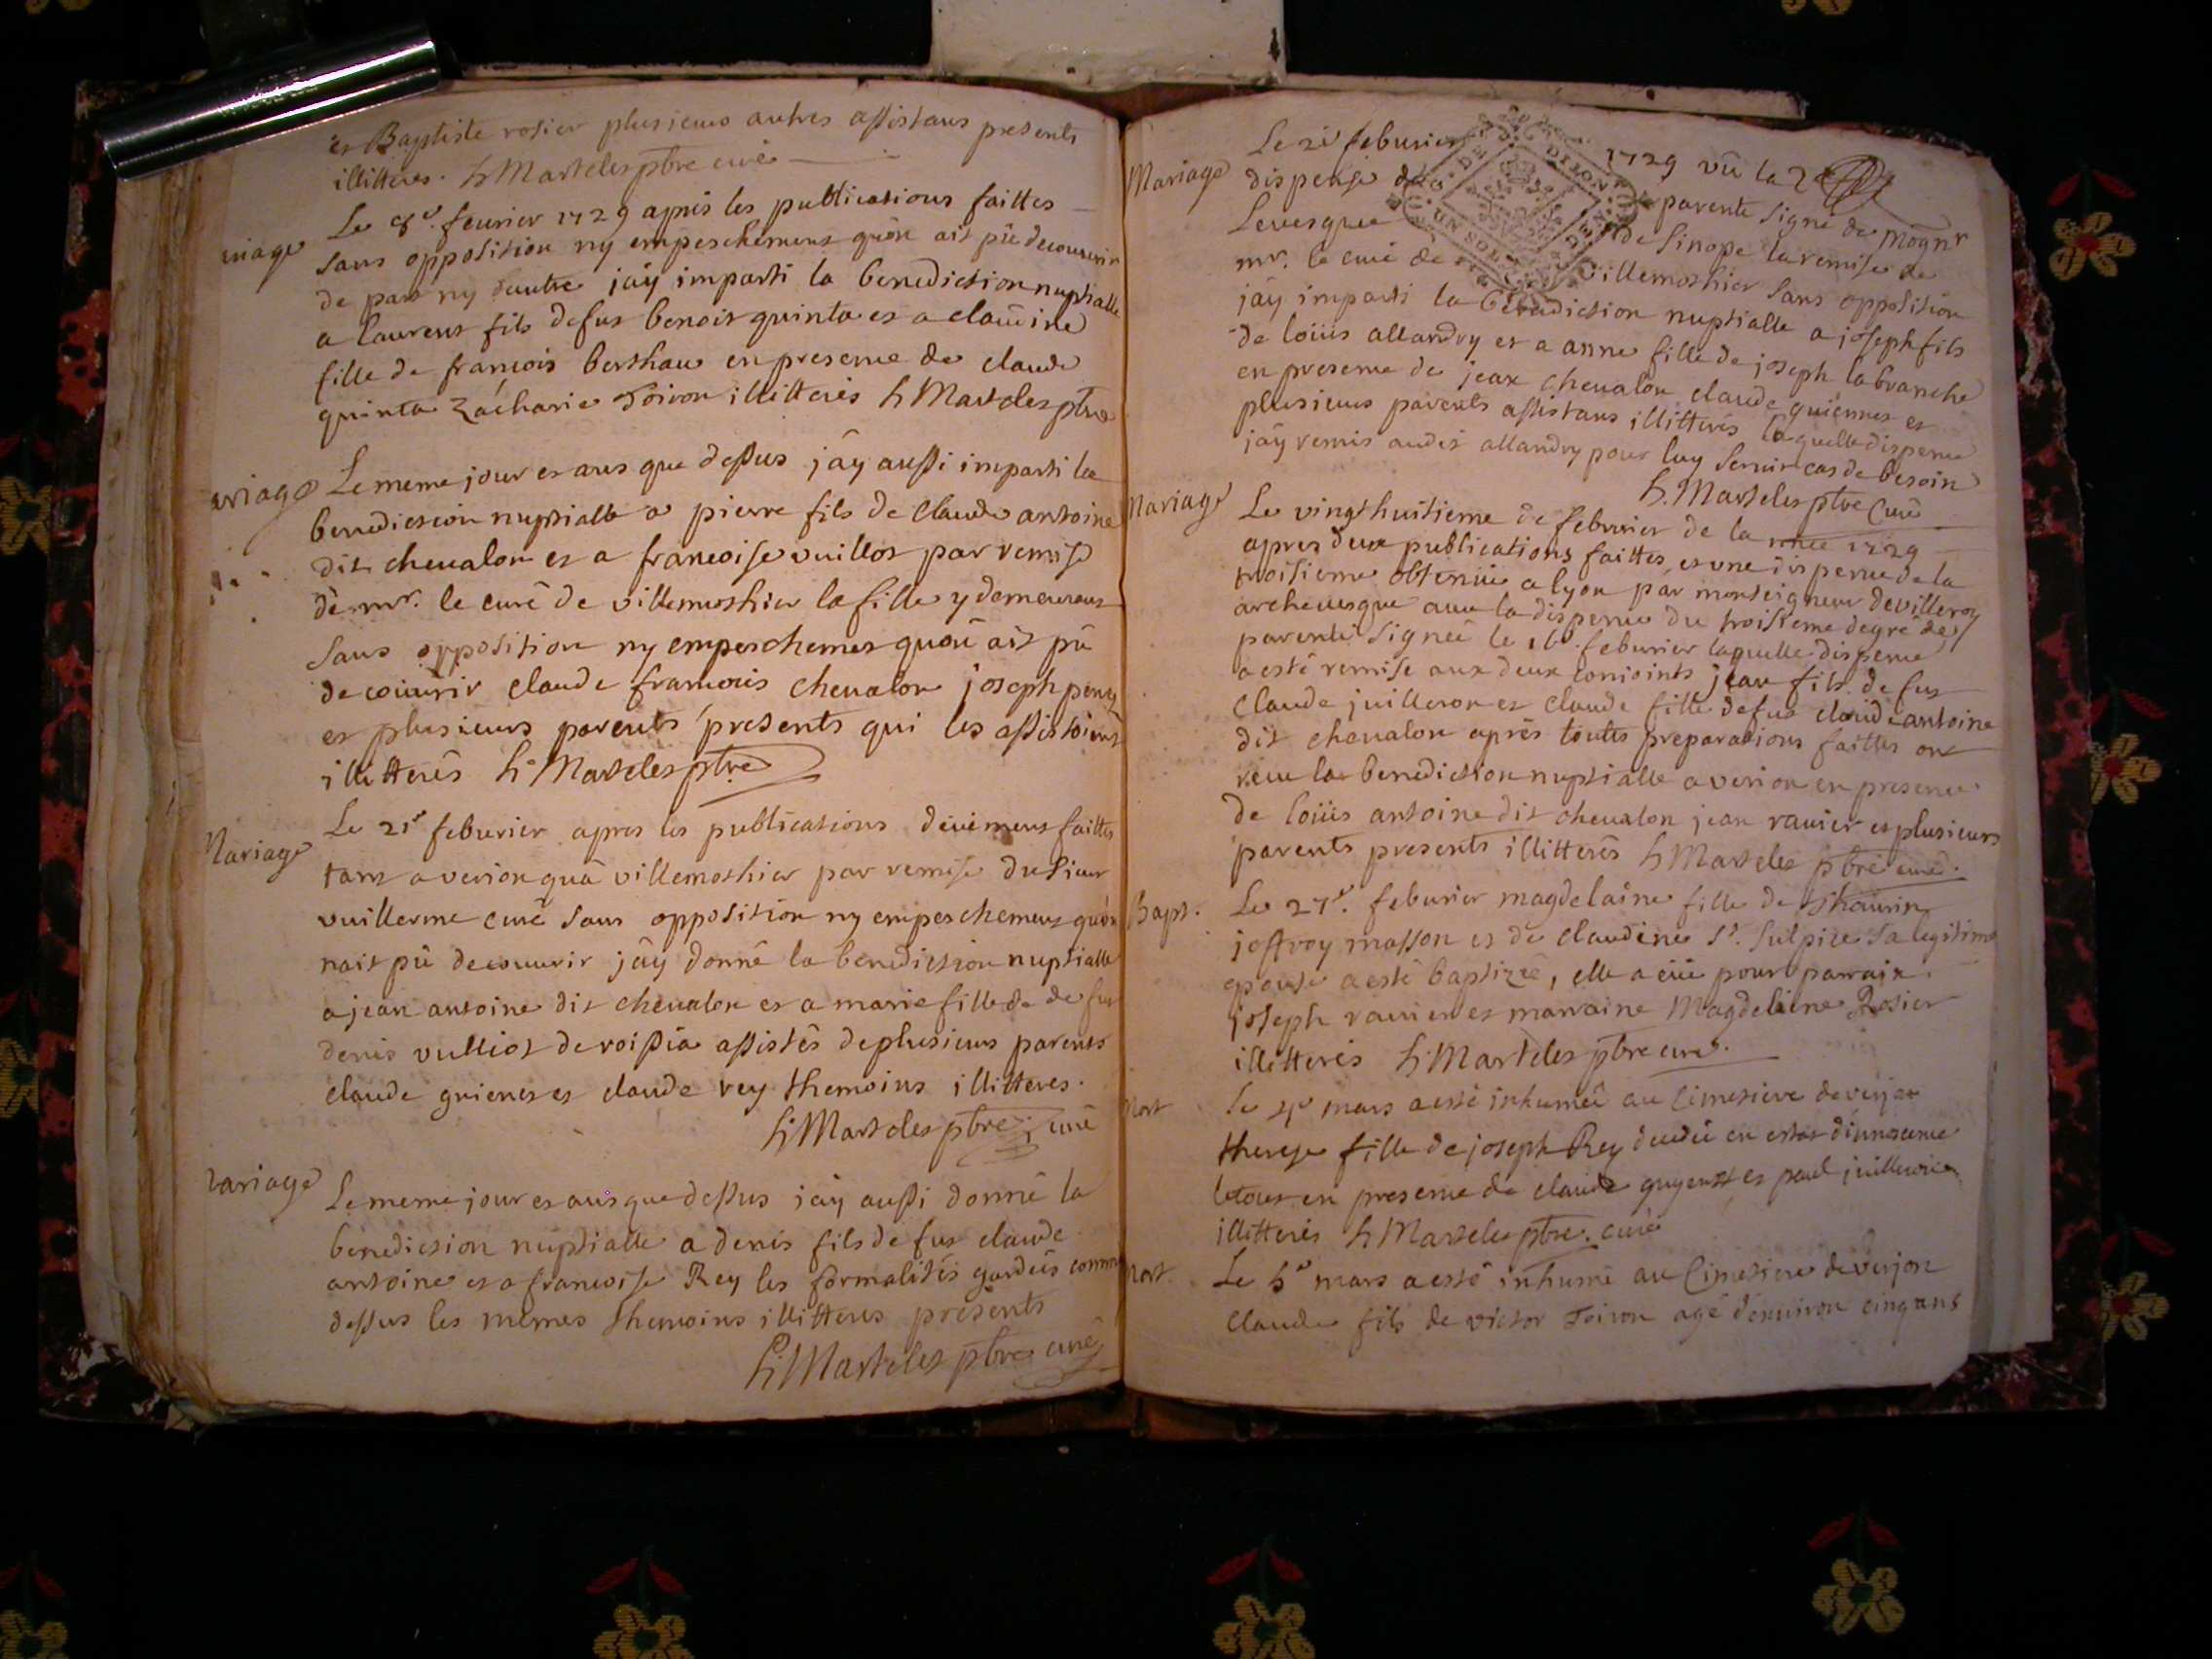 et Baptiste rosier plusieurs autres assistans presents
illitteres. h Martelet pbre curé
Mariage
Le 8e. feurier 1729 apres les publications faittes
sans opposition ny empeschement quon ait pû decouurir
de part ny dautre jáy imparti la benediction nuptialle
a laurent fils de fut benoit quinta et a claudine
fille de françois berthau en presence de claude
quinta Zácharie Toiron illitterés h Martelet ptre
Mariage
Le meme jour et ans que dessus jáy aussi imparti la
benediction nuptialle a pierre fils de Claude antoine
dit cheualon et a francoise vuillot par remise
de mr. le curé de villemothier la fille y demeurant
sans opposition ny empeschement quon ait pû
decouurir claude francois cheualon joseph
et plusieurs parents presents qui les assistoint
illitterés h Martelet ptre
Mariage
Le 21e feburier apres les publications deüement faittes
tant a verion quà villemothier par remise du sieur
vuillerme curé sans opposition ny empeschement quon
nait pû decouurir jáy donné la benediction nuptialle
a jean antoine dit cheualon et a marie fille de de fut
denis vulliot de roissia assistés de plusieurs parents
claude grienet et claude rey themoins illitteres.
h Martelet pbre curé
Mariage
Le meme jour et ans que dessus jáy aussi donné la
benediction nuptialle a denis fils de fut claude
antoine et a francoise Rey les formalités gardéés comme
dessus les mêmes themoins illitterés présents
h Martelet pbre curé
Mariage
Le 21 feburier 1729 vû la
dispense de parenté signé de mogn.r
Leuesque de Sinope la remise de
mr. le curé de villemothier sans opposition
jáy imparti la benediction nuptialle a joseph fils
de loüis allandry et a anne fille de joseph labranche
en presence de jean cheualon claude guiennet et
plusieurs parents assistans illitterés laquelle dispence
jáy remis audit allandry pour luy seruir cas de besoin
h. Martelet ptre Curé
Mariage
Le vingthuitieme de februrier de la 1729
apres deux publications faittes, et une dispence de la
troisieme obtenüe a lyon par monseigneur de villeroy
archeuesque auec la dispence du troisieme degré de
parenté signéé le 16e. feburier laquelle dispence
a esté remise aux deux conioints jean fils de fut
Claude juilleron et claude fille de fut claude antoine
dit cheualon aprés toutes preparations faittes ont
receu la benediction nuptialle a verion en presence
de loüis antoine dit cheualon jean rauier et plusieurs
parents presents illitterés h Martelet pbre curé.
Bapt.
Le 27e. feburier magdelaine fille de thaurin
joffroy masson et de claudine St. Sulpice sa legitime
epouse a esté baptizéé, elle a eüe pour parrain
joseph rauier et marraine Magdelaine Rosier
illitterés h Martelet pbre curé.
Mort
Le mars a esté inhuméé au Cimetiere de verjon
therese fille de joseph Rey decedéé en estat dinnocence
letout en presence de claude guyennet et paul juilleron
illitterés h Martelet ptre. curé
Mort.
Le 5e mars a esté inhumé au Cimetiere de verjon
Claude fils de victor Toiron agé denuiron cinq ans